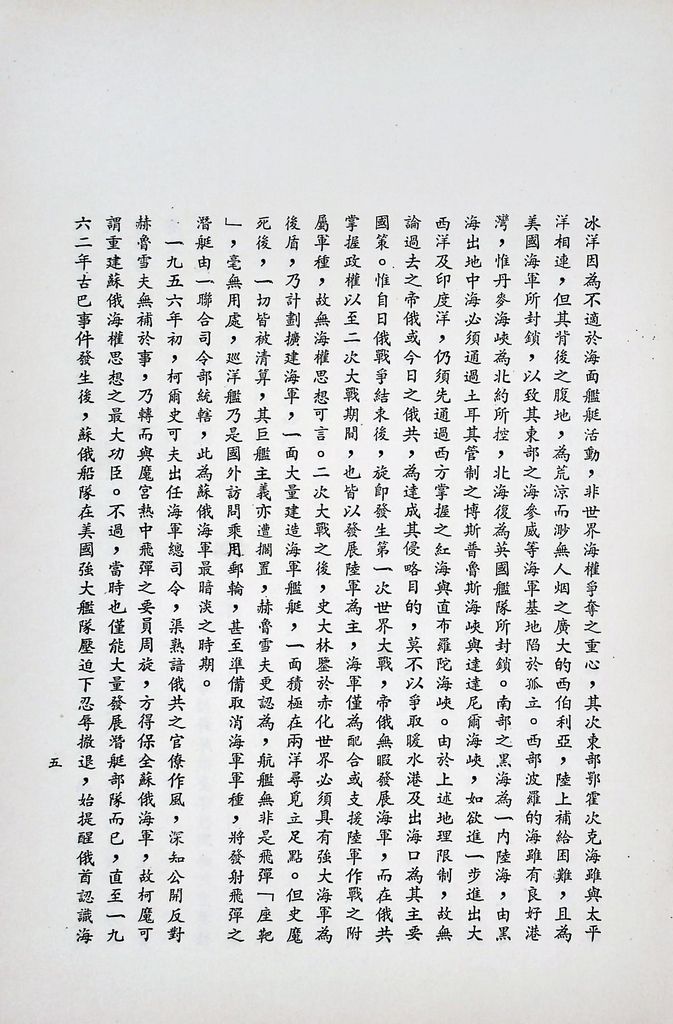 冰洋因為不適於海面艦艇活動，非世界海權爭奪之重心，其次東部鄂霍次克海雖與太平
洋相連，但其背後之腹地，為荒涼而渺無人烟之廣大的西伯利亞，陸上補給困難，且為
美國海軍所封鎖，以致其東部之海參威等海軍基地陷於孤立。西部波羅的海雖有良好港
灣，惟丹麥海峽為北約所控，北海復為英國艦隊所封鎖。南部之黑海為一內陸海，由黑
海出地中海必須通過土耳其管制之博斯普魯斯海峽與達達尼爾海峽，如欲進一步進出大
西洋及印度洋，仍須先通過西方掌握之紅海與直布羅陀海峽。由於上述地理限制，故無
論過去之帝俄或今日之俄共，為達成其侵略目的，莫不以爭取暖水港及出海口為其主要
國策。惟自日俄戰爭結束後，旋即發生第一次世界大戰，帝俄無暇發展海軍，而在俄共
掌握政權以至二次大戰期間，也皆以發展陸軍為主，海軍僅為配合或支援陸軍作戰之附
屬軍種，故無海權思想可言。二次大戰之後，史大林鑒於赤化世界必須具有強大海軍為
後盾，乃計劃擴建海軍，一面大量建造海軍艦艇，一面積極在兩洋尋覓立足點。但史魔
死後，一切皆被清算，其巨艦主義亦遭擱置，赫魯雪夫更認為，航艦無非是飛彈「座靶
」，毫無用處，巡洋艦乃是國外訪問乘用郵輪，甚至準備取消海軍軍種，將發射飛彈之
潛艇由一聯合司令部統轄，此為蘇俄海軍最暗淡之時期。
一九五六年初，柯爾史可夫出任海軍總司令，渠熟諳俄共之官僚作風，深知公開反對
赫魯雪夫無補於事，乃轉而與魔宮熱中飛彈之委員周旋，方得保全蘇俄海軍，故柯魔可
謂重建蘇俄海權思想之最大功臣。不過，當時也僅能大量發展潛艇部隊而已，直至一九
六二年古巴事件發生後，蘇俄船隊在美國強大艦隊壓迫下忍辱撤退，始提醒俄酋認識海
五